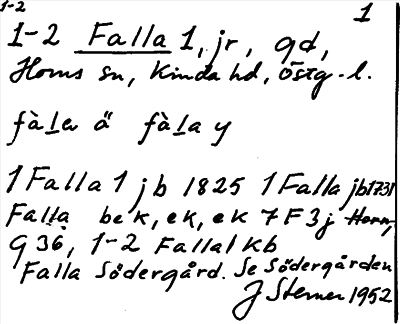 1-2
1
1-2 Falla 1, jr, gd,
Horns sn, Kinda hd, Östg. l.
fàlա ä fàla y
1 Falla 1 jb 1825 1 Falla jb 1731
Falla bek, ek, ek 7 F 3 j Horn,
G 36, 1-2 Falla 1 Kb
Falla Södergård. Se Södergården
J Sterner 1952